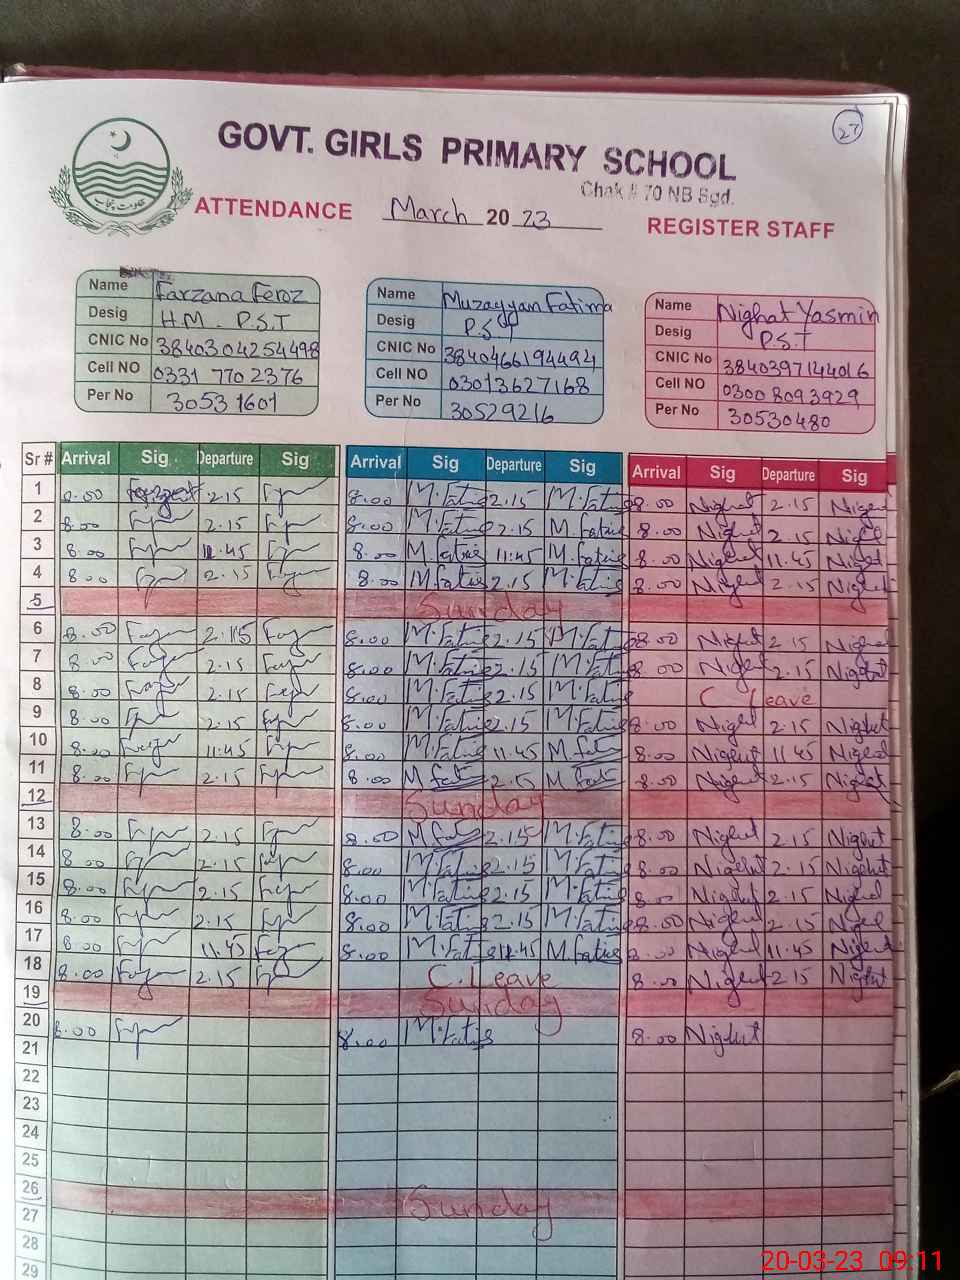 27
GOVT. GIRLS PRIMARY SCHOOL
Chak # 70 NB Sgd.
حکومت پنجاب
ATTENDANCE March 2023 REGISTER STAFF
Name Farzana Feroz
Desig H.M. P.S.T
CNIC No 3840304254498
Cell NO 0331 7702376
Per No 30531601
Name Muzayyam Fatima
Desig P.ST
CNIC No 3840466194494
Cell NO 03013627168
Per No 30529216
Name Nighat Yasmin
Desig P.S.T
CNIC No 3840397144016
Cell NO 03008093929
Per No 30530480
Sr # Arrival Sig Departure Sig Arrival Sig Departure Sig Arrival Sig Departure Sig
1 8.00 2.15 8.00 M.Fatima 2.15 M.Fatima 8.00 Nighat 2.15 Nighat
2 8.00 2.15 8.00 M.Fatima 2.15 M.Fatima 8.00 Nighat 2.15 Nighat
3 8.00 11.45 8.00 M.Fatima 11:45 M.Fatima 8.00 Nighat 11.45 Nighat
4 8.00 2.15 8.00 M.Fatima 2.15 M.Fatima 8.00 Nighat 2.15 Nighat
5 Sunday
6 8.00 2.15 8.00 M.Fatima 2.15 M.Fatima 8.00 Nighat 2.15 Nighat
7 8.00 2.15 8.00 M.Fatima 2.15 M.Fatima 8.00 Nighat 2.15 Nighat
8 8.00 2.15 8.00 M.Fatima 2.15 M.Fatima C. Leave
9 8.00 2.15 8.00 M.Fatima 2.15 M.Fatima 8.00 Nighat 2.15 Nighat
10 8.00 11.45 8.00 M.Fatima 11.45 M.Fatima 8.00 Nighat 11.45 Nighat
11 8.00 2.15 8.00 M.Fatima 2.15 M.Fatima 8.00 Nighat 2.15 Nighat
12 Sunday
13 8.00 2.15 8.00 M.Fatima 2.15 M.Fatima 8.00 Nighat 2.15 Nighat
14 8.00 2.15 8.00 M.Fatima 2.15 M.Fatima 8.00 Nighat 2.15 Nighat
15 8.00 2.15 8.00 M.Fatima 2.15 M.Fatima 8.00 Nighat 2.15 Nighat
16 8.00 2.15 8.00 M.Fatima 2.15 M.Fatima 8.00 Nighat 2.15 Nighat
17 8.00 11.45 8.00 M.Fatima 11.45 M.Fatima 8.00 Nighat 11.45 Nighat
18 8.00 2.15 C. Leave 8.00 Nighat 2.15 Nighat
19 Sunday
20 8.00 8.00 M.Fatima 8.00 Nighat
21
22
23
24
25
26 Sunday
27
28
29
20-03-23 09:11